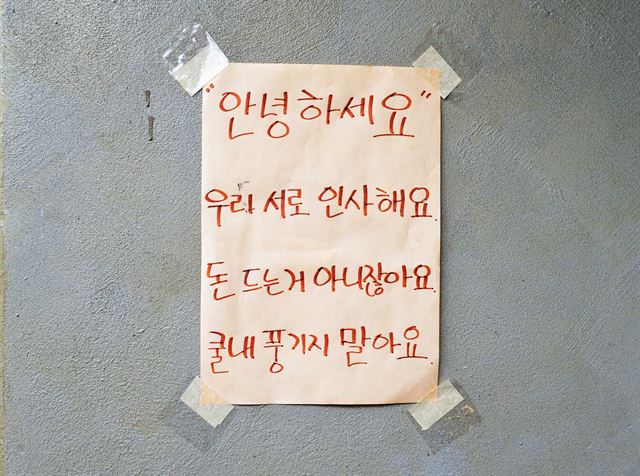 "안녕하세요"
우리 서로 인사해요.
돈 드는거 아니잖아요.
쿨내 풍기지 말아요.